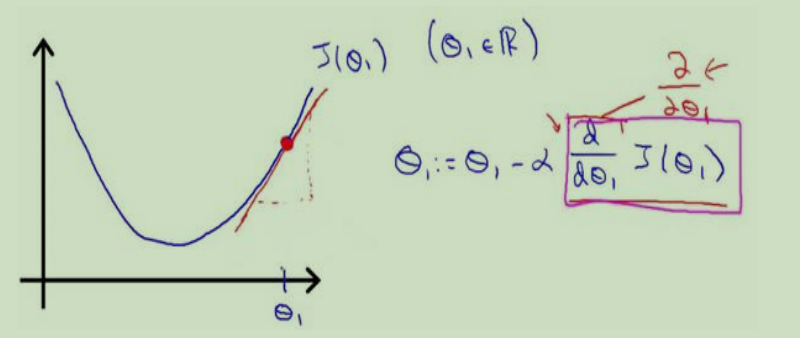 J(θ₁) (θ₁ ∈ ℝ)
∂
∂θ₁
θ₁ := θ₁ - α d/dθ₁ J(θ₁)
θ₁